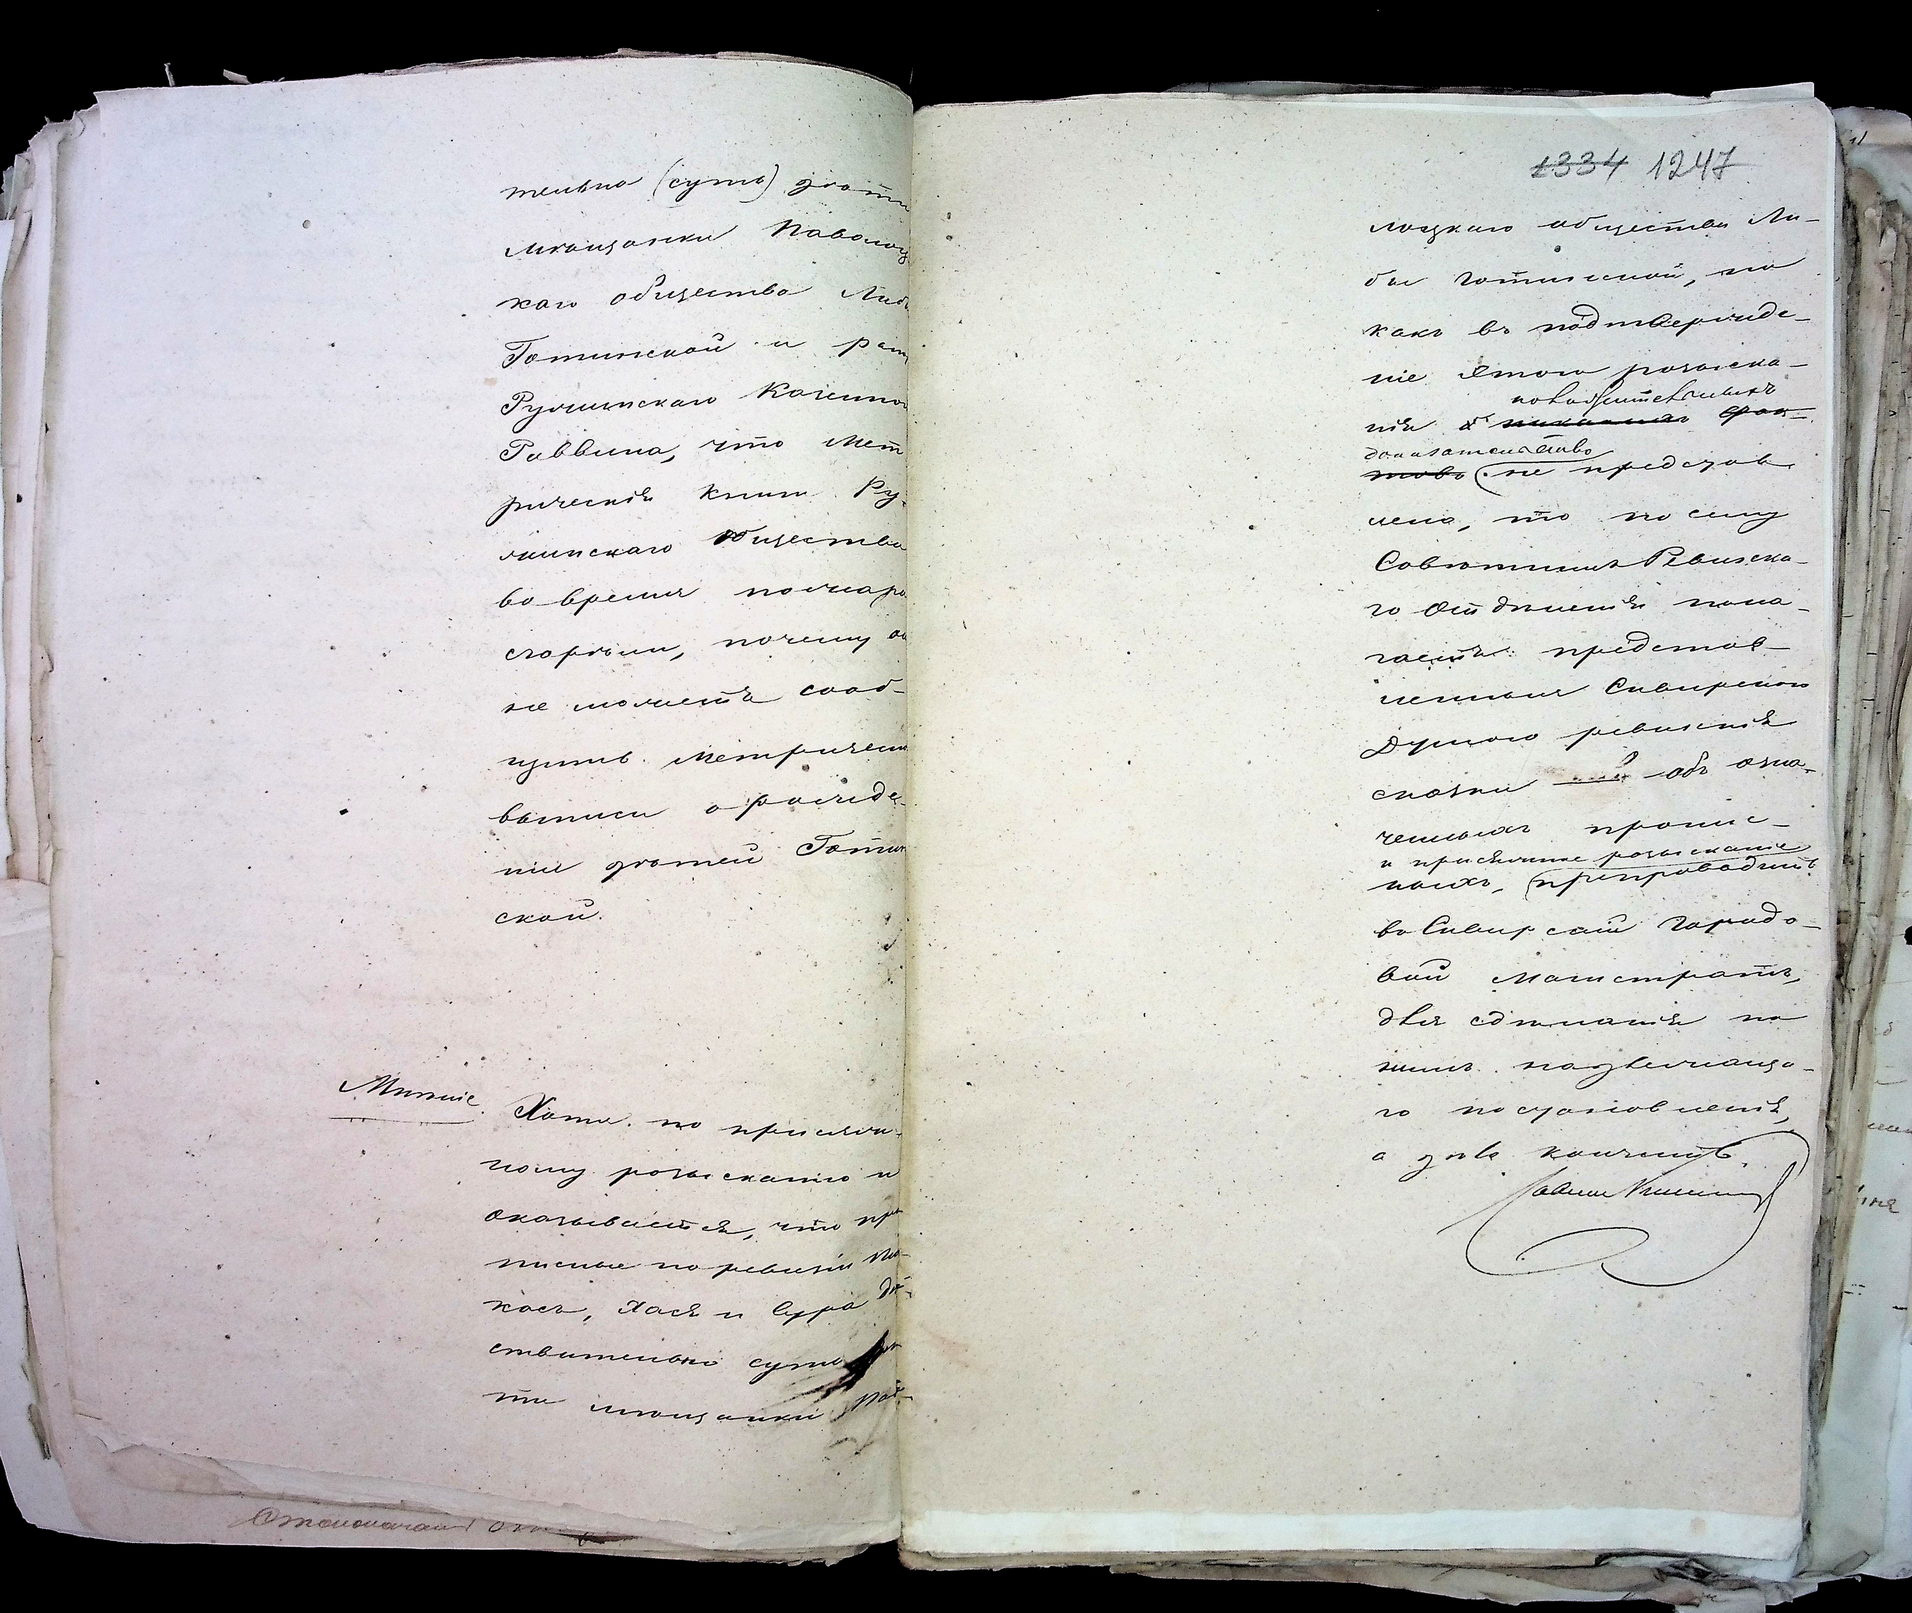 тельно (суть) дѣти
мѣщанки Паволоц
каго общества Либы
Готинской и рап
Ружинскаго Казеннаго
Раввина, что Мет
рическія книги Ру-
жинскаго Общества
во время пожара
сгорѣли, почему он
не можетъ сооб-
щить Метрическ
выписи о рожде-
ніи дѣтей Готин
ской.
Мнѣніе. Хотя по присяж-
ному розысканію и
оказывается, что про
писные по ревизіи
Хася и Сура дѣй-
ствительно суть дѣ
ти мѣщанки Паво-
1334 1247
лоцкаго общества Ли-
бы Готинской, но
какъ въ подтвержде-
ніе этого розыска-
нія никакихъ фак-
доказательствъ
товъ не представ-
лено, то по сему
Совѣтникъ Ревизска-
го Отдѣленія пола-
гаетъ: представ-
ленныя Сквирскою
Думою ревизскія
сказки объ озна-
ченныхъ пропис-
и присяжные розысканіе
ныхъ, препроводить
въ Сквирскій Городо-
вой Магистратъ,
для сдѣланія по
нимъ надлежаща-
го постановленія,
а дѣло кончить.